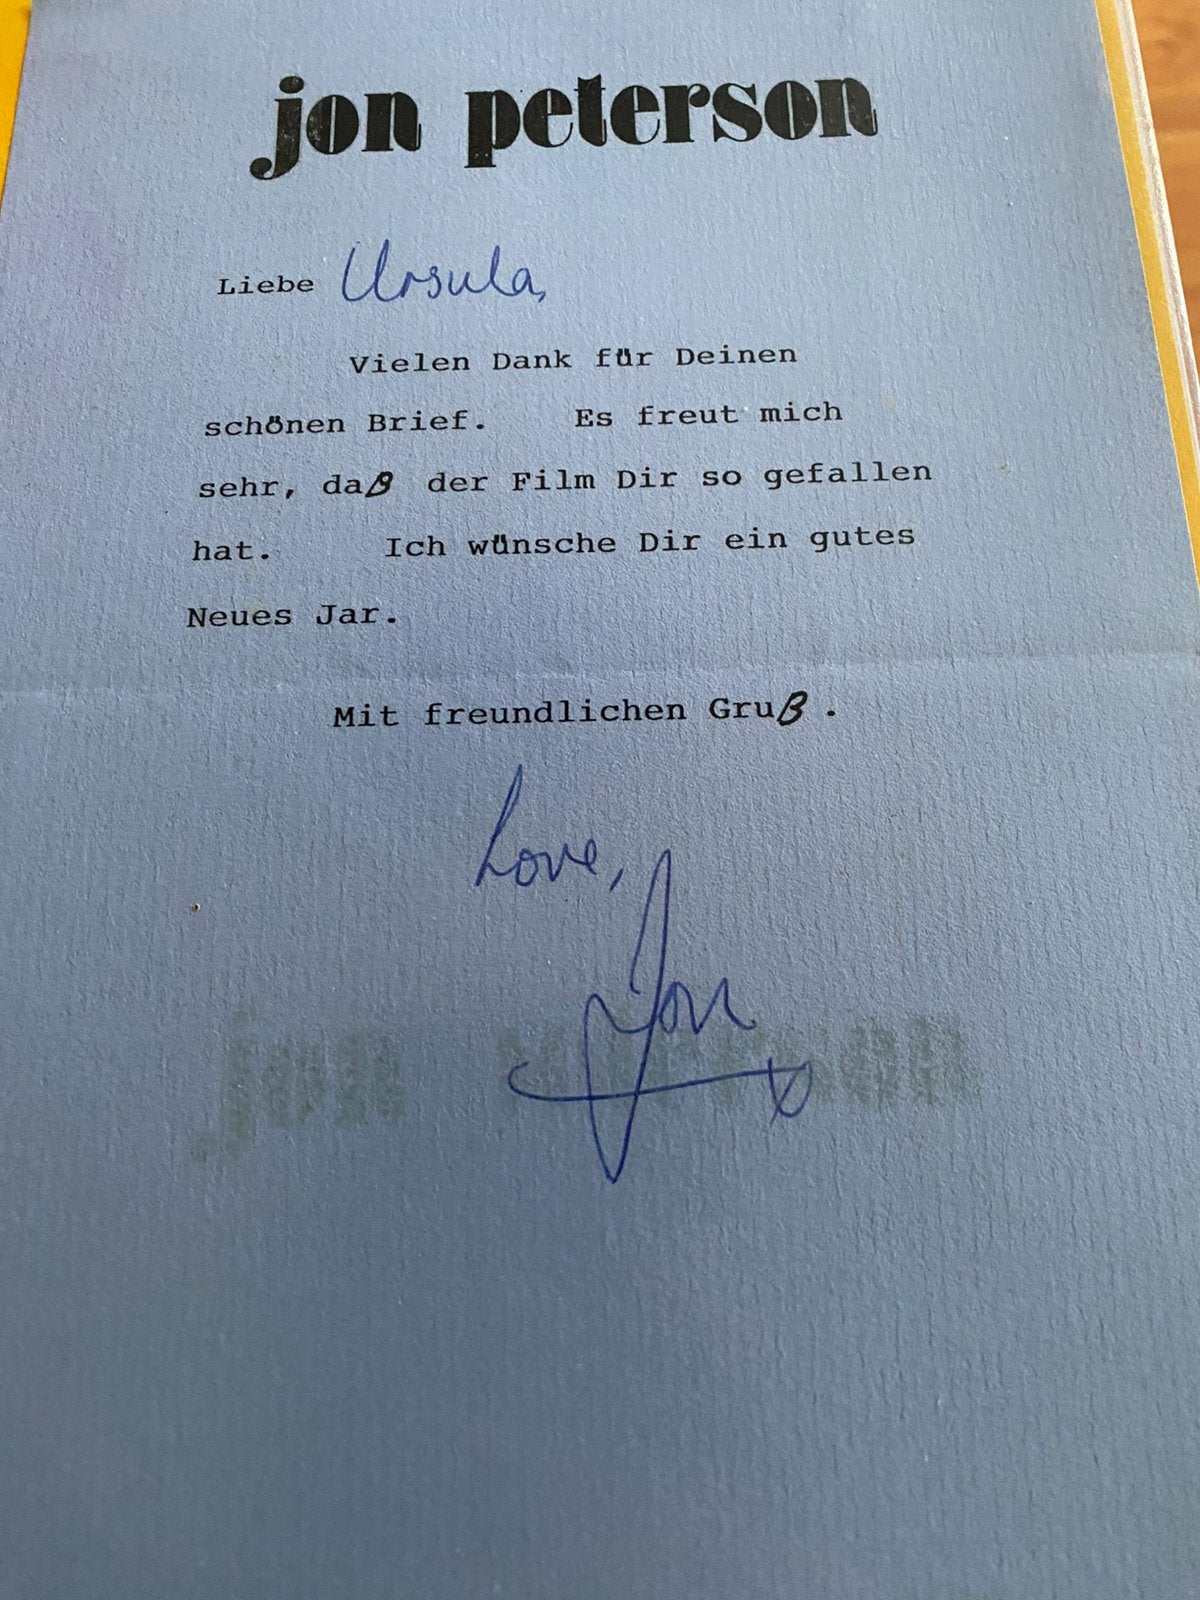 jon peterson
Liebe Ursula,
Vielen Dank für Deinen
schönen Brief. Es freut mich
sehr, daß der Film Dir so gefallen
hat. Ich wünsche Dir ein gutes
Neues Jar.
Mit freundlichen Gruß.
Love,
Jon
x
jon peterson